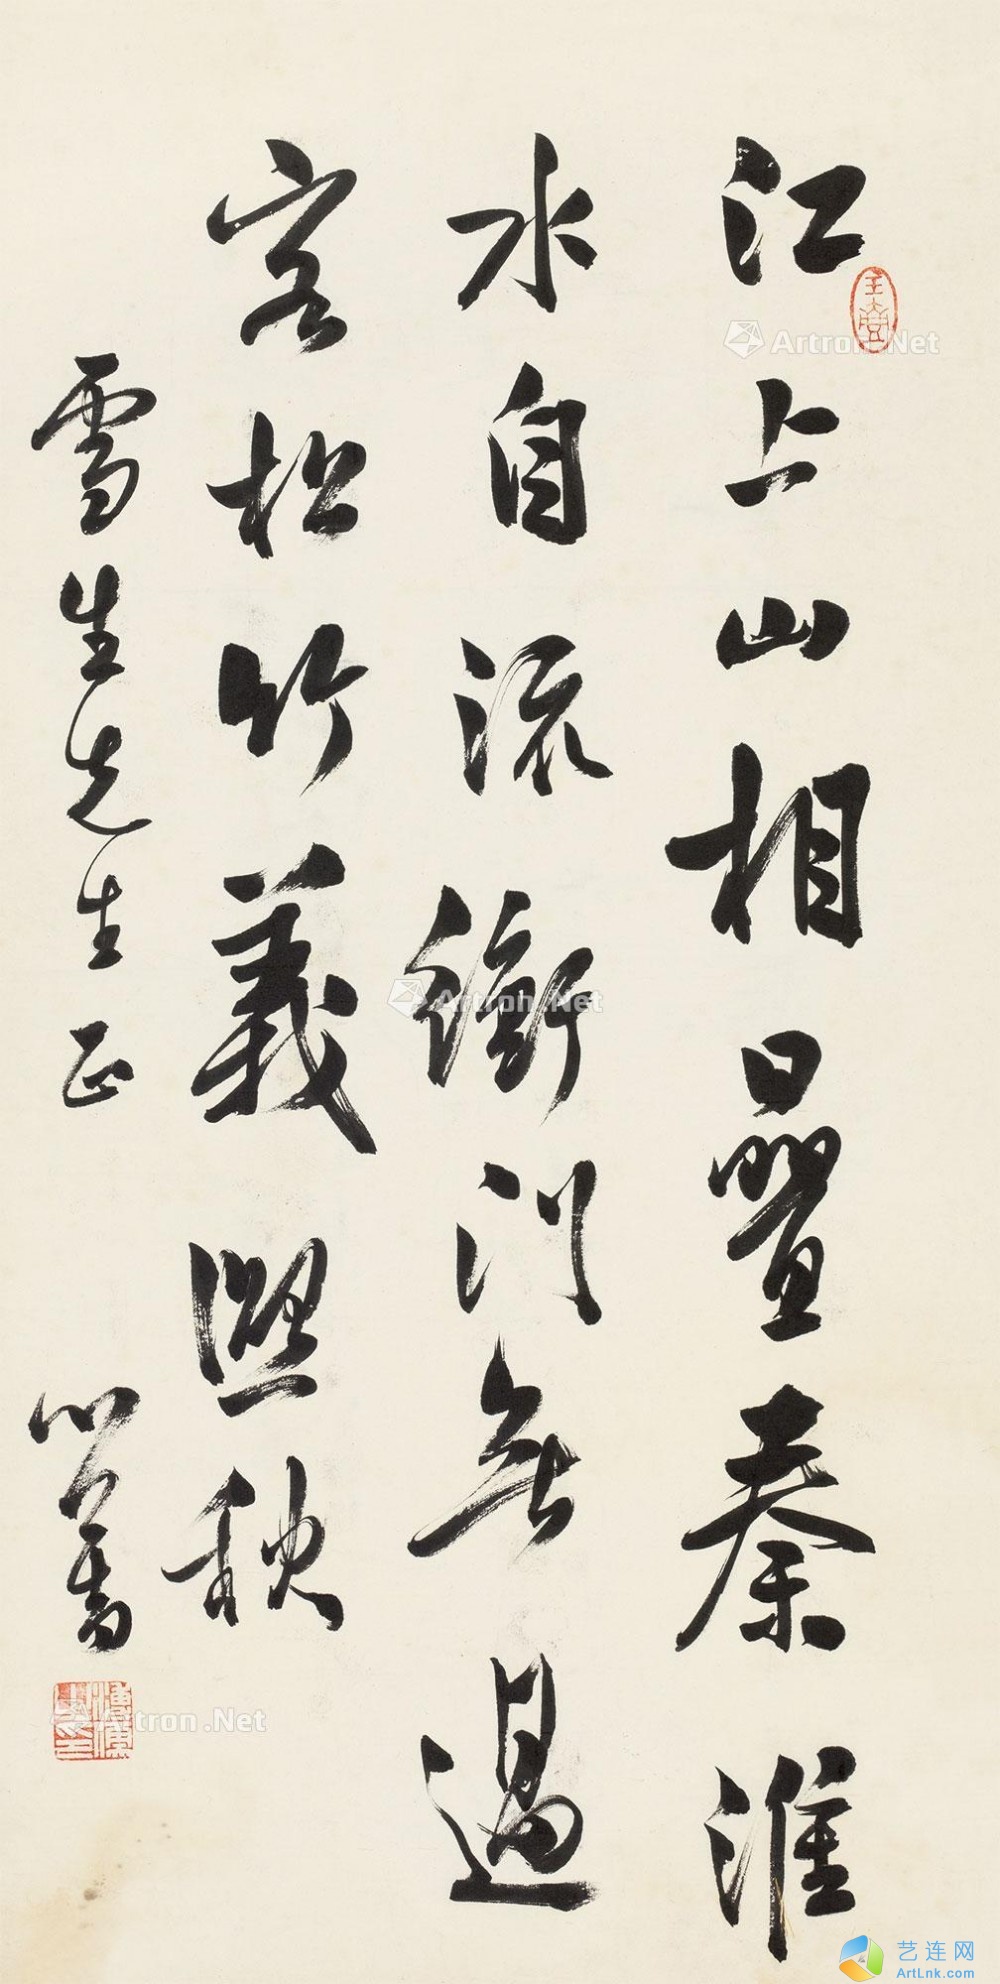 江上山相疊秦淮
水自流衡門無過
客松竹義熙秋
雪生先生正
心畬
Artron.Net
Artron.Net
Artron.Net
艺连网
ArtLnk.com